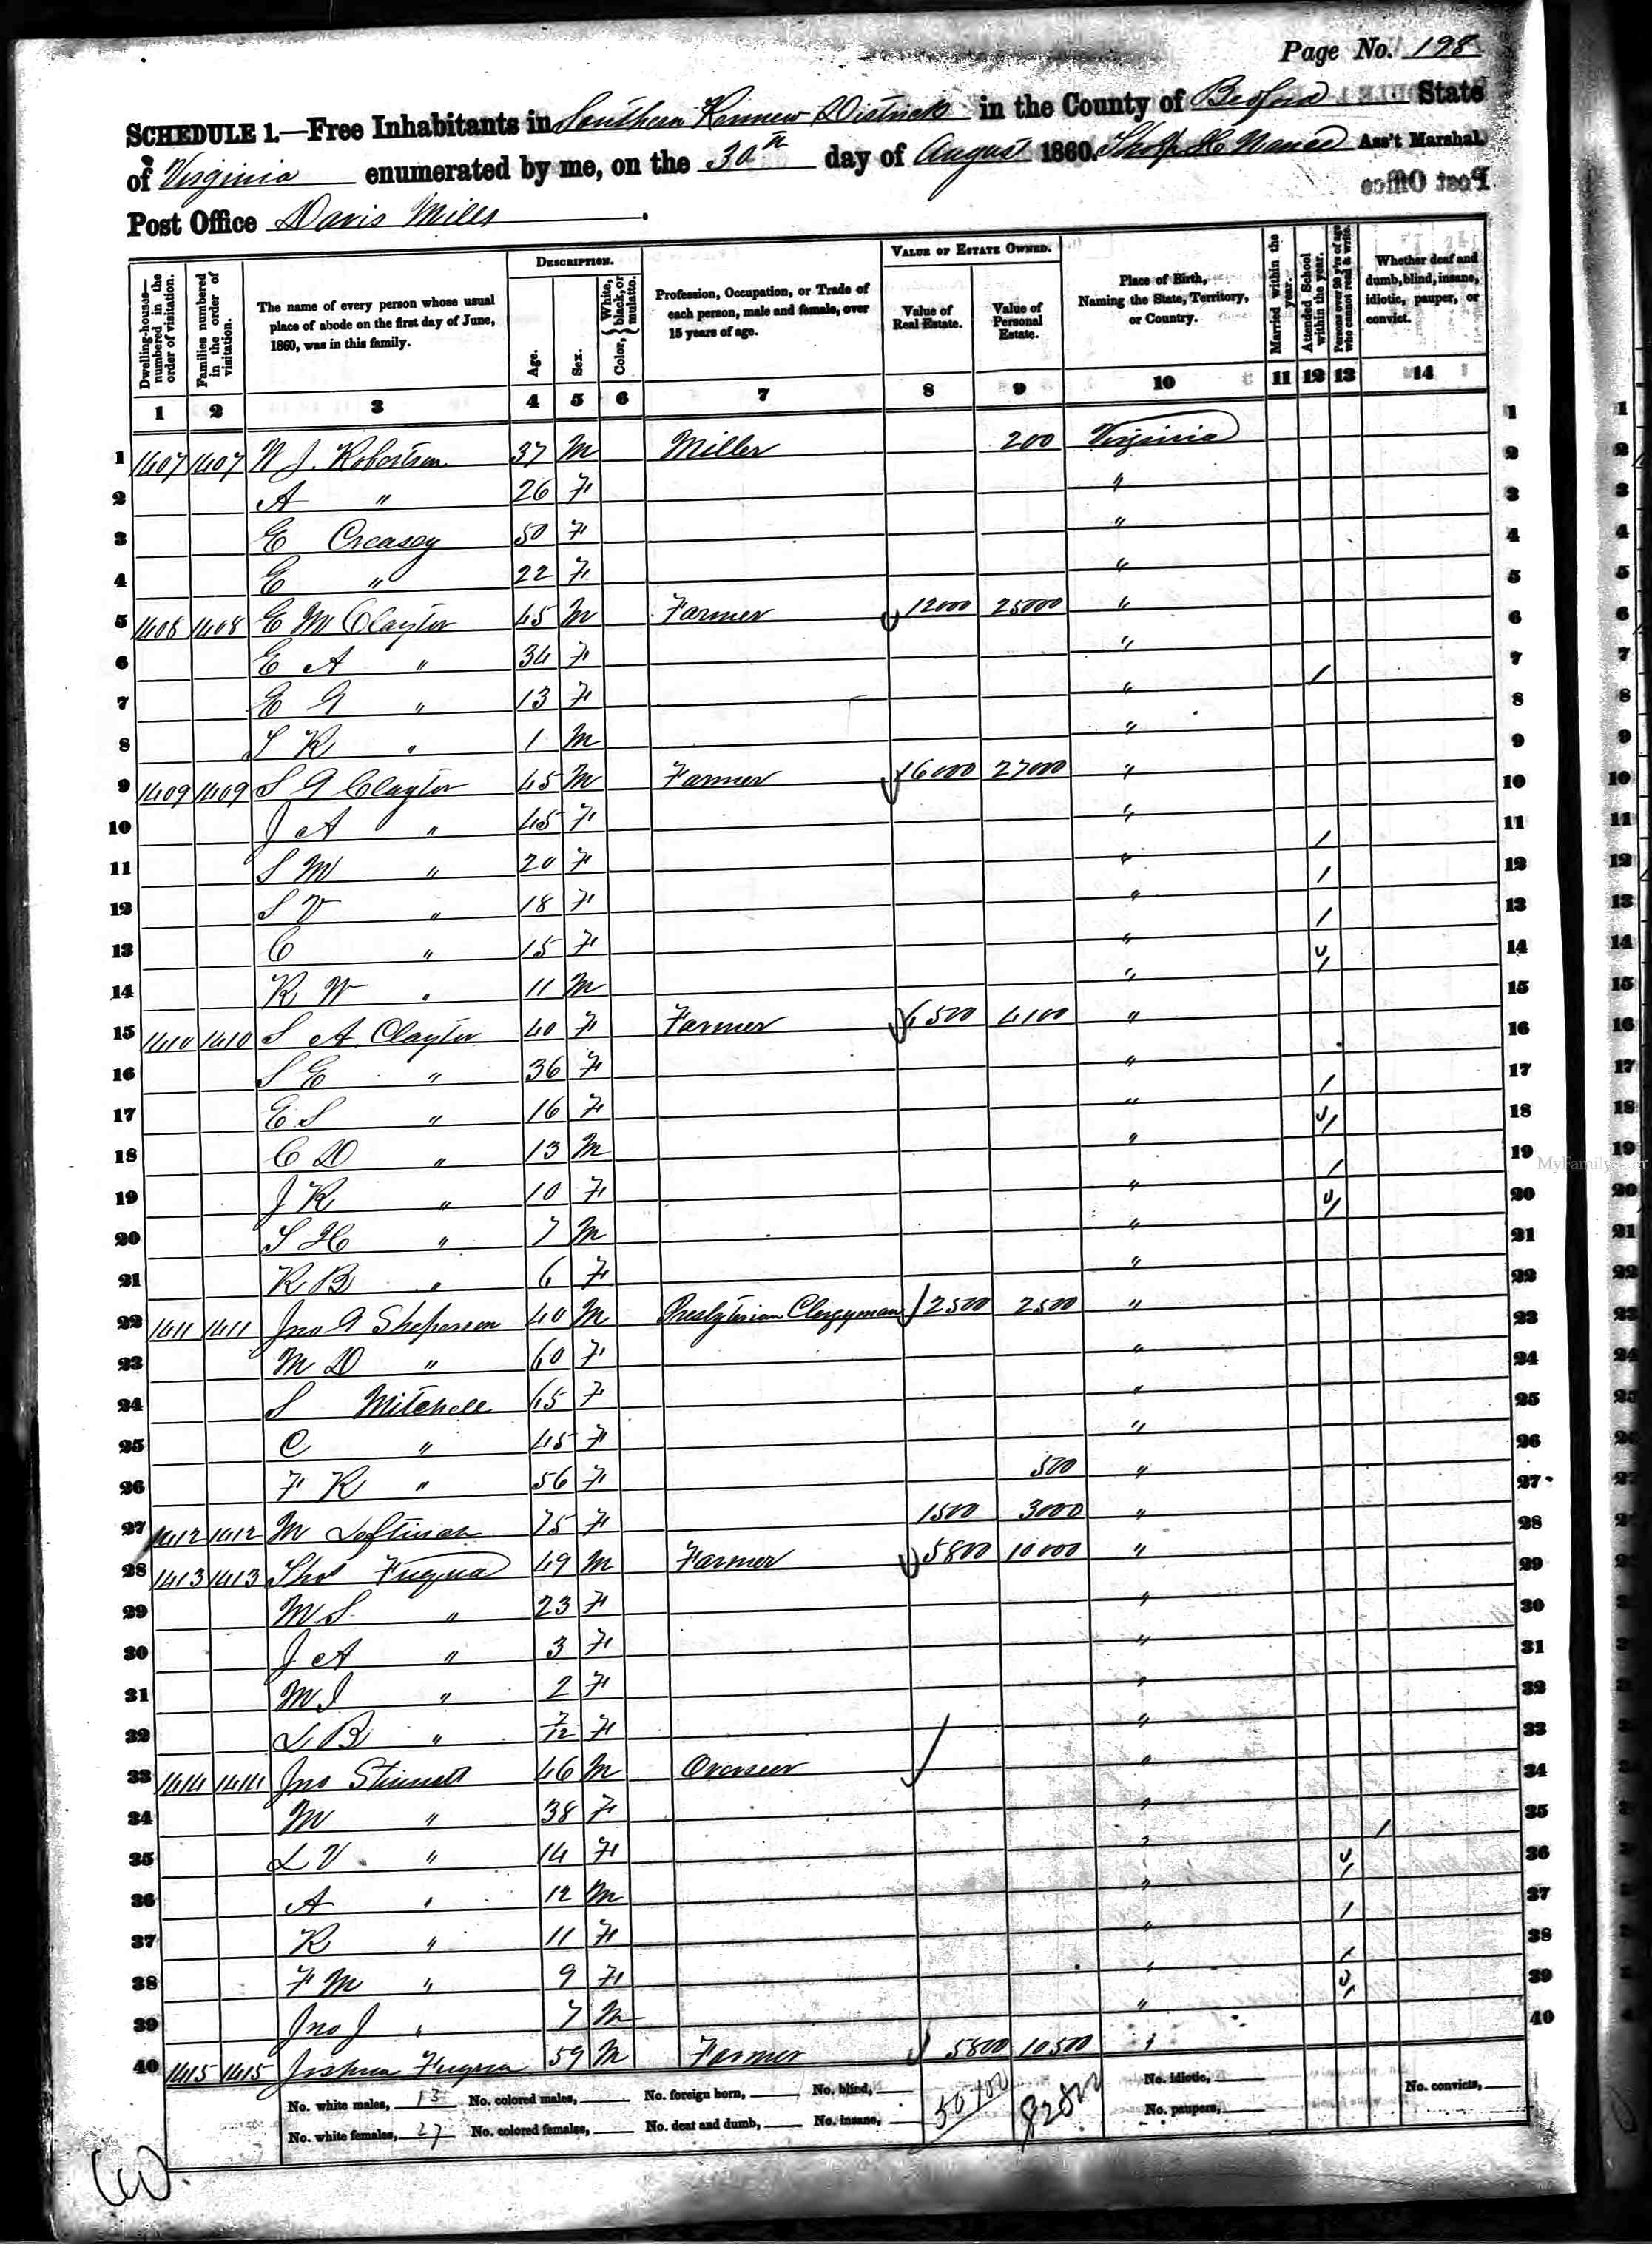 Page No. 198
SCHEDULE 1.—Free Inhabitants in Southern Revenue District in the County of Bedford State
of Virginia enumerated by me, on the 30th day of August 1860. Thos H Nance Ass't Marshal.
Post Office Davis Mills
Post Office
Dwelling-house—numbered in the order of visitation.
Families numbered in the order of visitation.
The name of every person whose usual place of abode on the first day of June, 1860, was in this family.
DESCRIPTION.
Age.
Sex.
Color, { White, black, or mulatto. }
Profession, Occupation, or Trade of each person, male and female, over 15 years of age.
VALUE OF ESTATE OWNED.
Value of Real Estate.
Value of Personal Estate.
Place of Birth, Naming the State, Territory, or Country.
Married within the year.
Attended School within the year.
Persons over 20 y'rs of age who cannot read & write.
Whether deaf and dumb, blind, insane, idiotic, pauper, or convict.
1 2 3 4 5 6 7 8 9 10 11 12 13 14
1 1407 1407 W J. Robertson 37 M Miller 200 Virginia 1
2 A " 26 F " 2
3 E Creasey 50 F " 3
4 E " 22 F " 4
5 1408 1408 E M Clayter 45 M Farmer 12000 25000 " 5
6 E A " 34 F " 6
7 E G " 13 F " / 7
8 S R " 1 M " 8
9 1409 1409 S G Clayter 45 M Farmer 16000 27000 " 9
10 J A " 45 F " 10
11 S M " 20 F " / 11
12 S V " 18 F " / 12
13 C " 15 F " / 13
14 R W " 11 M " / 14
15 1410 1410 S A. Clayter 40 F Farmer 6500 4100 " 15
16 S E " 36 F " 16
17 E S " 16 F " / 17
18 C D " 13 M " / 18
19 J R " 10 F " / 19
20 S H " 7 M " / 20
21 R B " 6 F " 21
22 1411 1411 Jno G Sheperson 40 M Presbyterian Clergyman 2500 2500 " 22
23 M D " 60 F " 23
24 S Mitchell 65 F " 24
25 C " 45 F " 25
26 F R " 56 F 500 " 26
27 1412 1412 M Loftinch 75 F 1500 3000 " 27
28 1413 1413 Thos Fuqua 49 M Farmer 5800 10000 " 28
29 M S " 23 F " 29
30 J A " 3 F " 30
31 M J " 2 F " 31
32 L B " 7/12 F " 32
33 1414 1414 Jno Stinnett 46 M Overseer " 33
34 M " 38 F " 34
35 L V " 14 F " / 35
36 A " 12 M " / 36
37 R " 11 F " / 37
38 F M " 9 F " / 38
39 Jno J " 7 M " / 39
40 1415 1415 Joshua Fuqua 59 M Farmer 5800 10500 " 40
No. white males, 13 No. colored males, No. foreign born, No. blind, 50100 82800 No. idiotic, No. convicts,
No. white females, 27 No. colored females, No. deaf and dumb, No. insane, No. paupers,